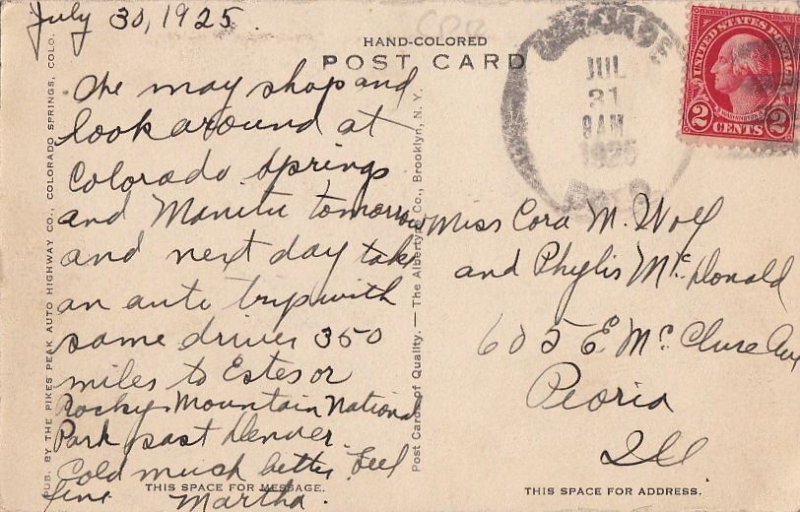 July 30, 1925.
HAND-COLORED
POST CARD
We may shop and
look around at
Colorado Springs
and Manitu tomorrow
and next day take
an auto trip with
same driver 350
miles to Estes or
Rocky Mountain National
Park past Denver.
Cold much better. Feel
fine
Martha.
THIS SPACE FOR MESSAGE.
PUB. BY THE PIKES PEAK AUTO HIGHWAY CO., COLORADO SPRINGS, COLO.
Post Cards of Quality. — The Albertype Co., Brooklyn, N. Y.
JUL
31
9 AM
1925
UNITED STATES POSTAGE
2 CENTS 2
Miss Cora M. Wolf
and Phylis McDonald
605 E. McClure Ave
Peoria
Ill.
THIS SPACE FOR ADDRESS.